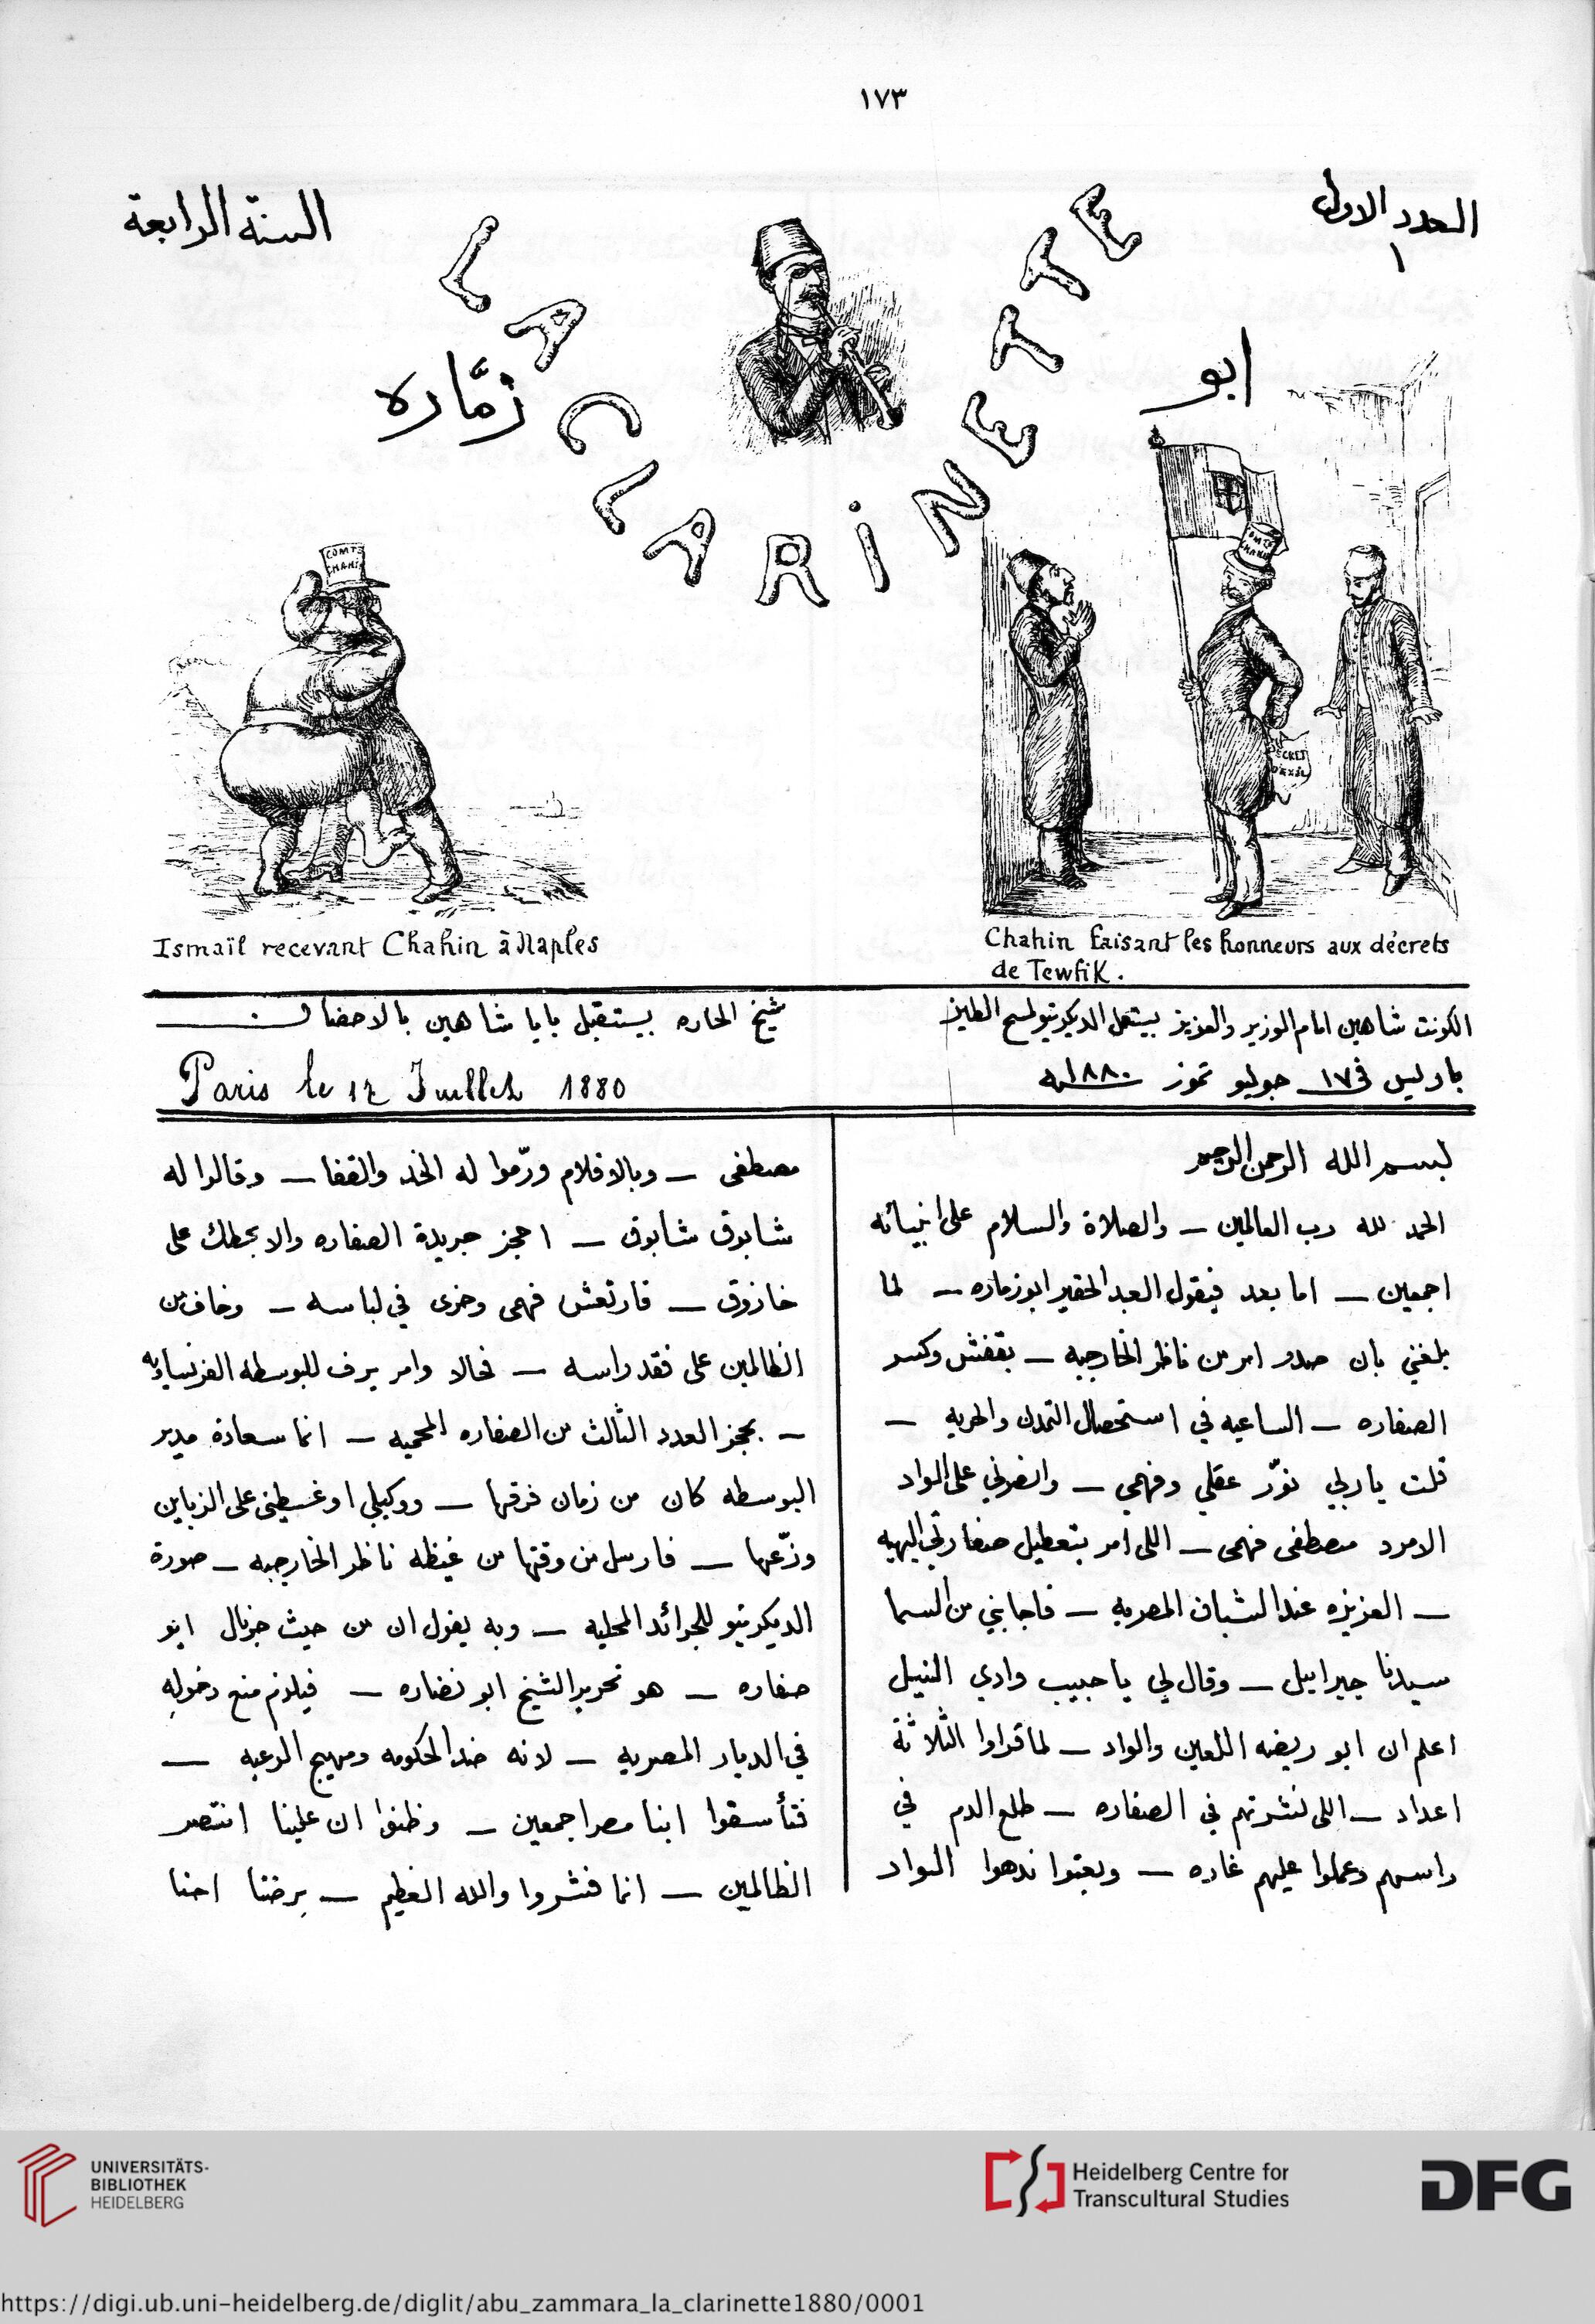 ١٧٣
العدد الاول
١
السنة الرابعة
LA CLARINETTE
ابو
زمّاره
COMTE
CHAHIN
COMTE
CHAHIN
DECRET
D'EXIL
Ismaïl recevant Chahin à Naples
Chahin faisant les honneurs aux décrets
de Tewfik.
الكونت شاهين امام الوزير والعزيز بيستعمل الديكريتو لمسح الطيز
شيخ الحاره بيستقبل بابا شاهين بالاحضان
باريس في ١٧ جوليو تموز ١٨٨٠
Paris le 17 Juillet 1880
بسم الله الرحمن الرحيم
الحمد لله رب العالمين — والصلاة والسلام على انبيائه
اجمعين — اما بعد فيقول العبد الحقير ابو زماره — لما
بلغني بان صدر امر من ناظر الخارجيه — بقفش وكسر
الصفاره — الساعيه في استحصال التمدن والحريه —
قلت يا ربي نوّر عقلي وفهمي — وانصرني على الواد
الامرد مصطفى فهمى — اللى امر بتعطيل صفارتي البهيه
— العزيزه عند الشبان المصريه — فاجابني من السما
سيدنا جبرابيل — وقال لي يا حبيب وادي النيل
اعلم ان ابو ريضه اللعين والواد — لما قراوا الثلاثة
اعداد — اللى نشرتهم في الصفاره — طلع الدم في
راسهم وعملوا عليهم غاره — وبعتوا ندهوا الواد
مصطفى — وبالاقلام ورّموا له الخد والقفا — وقالوا له
شابوق شابوق — احجز جريدة الصفاره والا نحطك على
خازوق — فارتعش فهمى وخرى في لباسه — وخاف من
الظالمين على فقد راسه — فحالا وامر يرف للبوسطه الفرنساويه
— بحجز العدد الثالث من الصفاره المحميه — انما سعادة مدير
البوسطه كان من زمان فرقها — ووكيلي اوغسطينى على الزباين
وزّعها — فارسل من وقتها من غيظه ناظر الخارجيه — صورة
الديكريتو للجرائد المحليه — وبه يقول ان من حيث جرنال ابو
صفاره — هو تحرير الشيخ ابو نضاره — فيلزم منع دخوله
في الديار المصريه — لانه ضد الحكومه ومهيج الرعيه —
فتأسفوا ابنا مصر اجمعين — وظنوا ان علينا انتصر
الظالمين — انما فشروا والله العظيم — برضنا احنا
UNIVERSITÄTS-
BIBLIOTHEK
HEIDELBERG
Heidelberg Centre for
Transcultural Studies
DFG
https://digi.ub.uni-heidelberg.de/diglit/abu_zammara_la_clarinette1880/0001